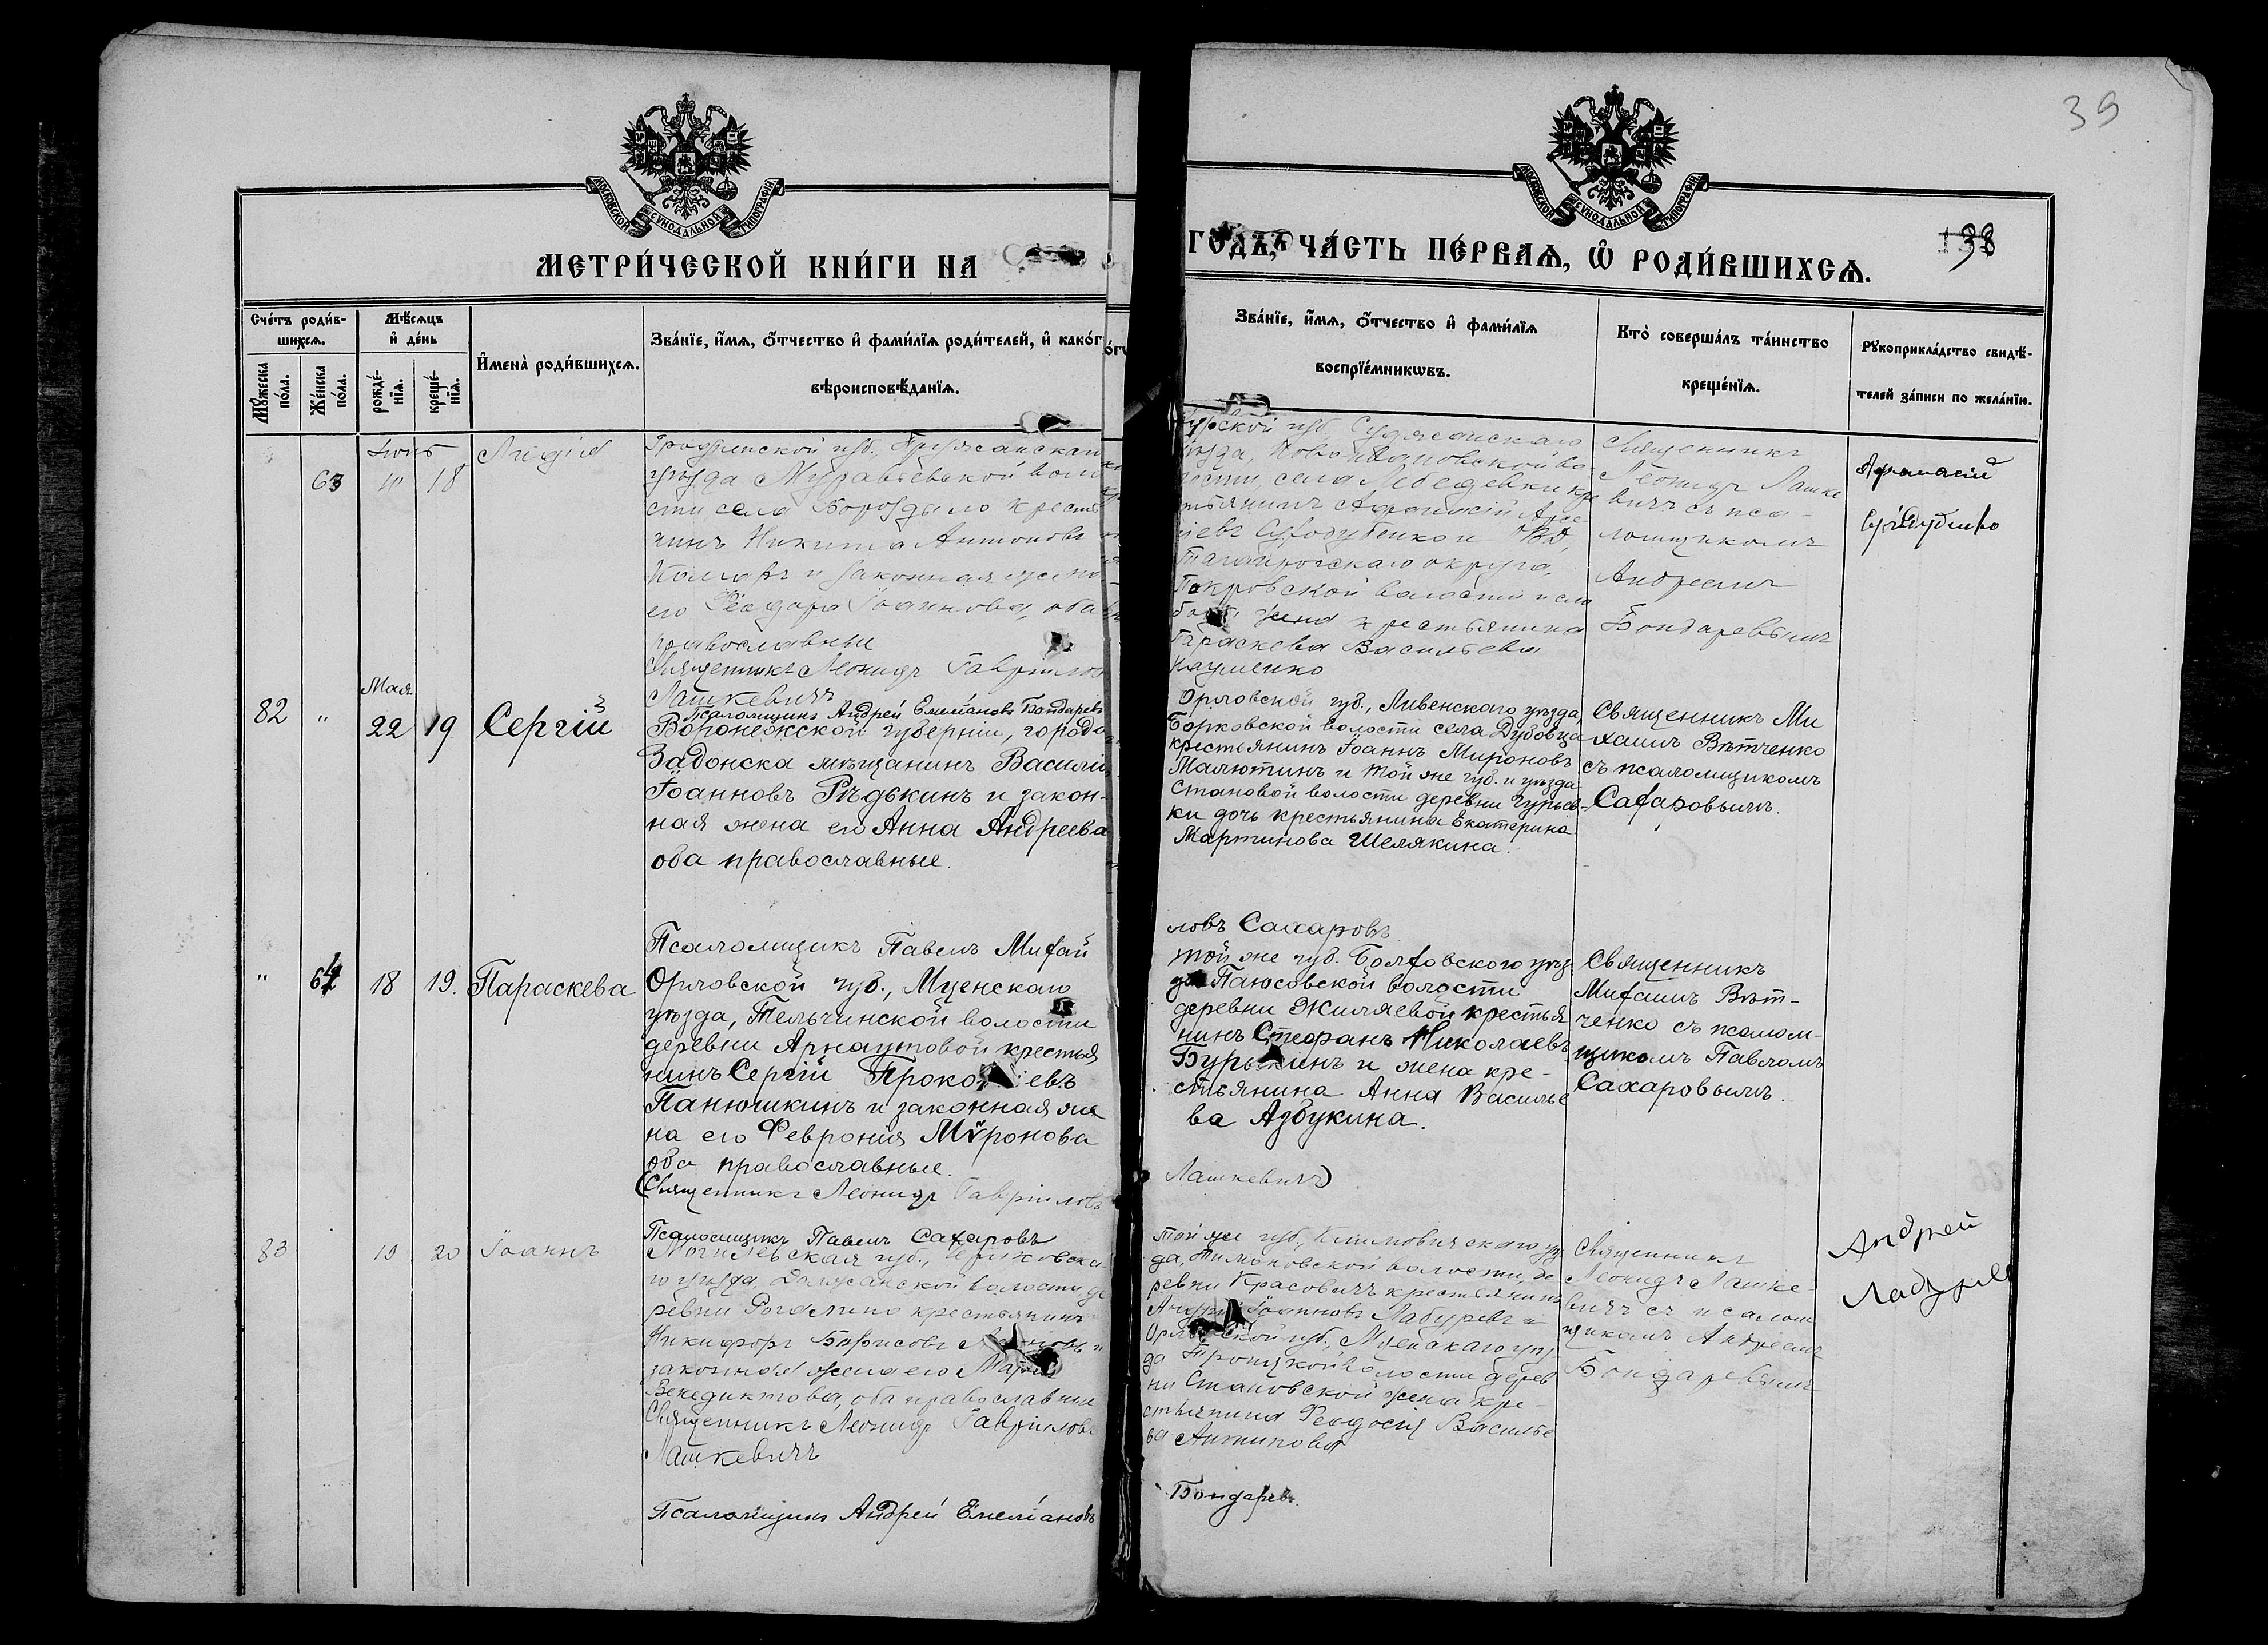 39
МОСКОВСКОЙ СѴНОДАЛЬНОЙ ТИПОГРАФІИ
МОСКОВСКОЙ СѴНОДАЛЬНОЙ ТИПОГРАФІИ
МЕТРИ́ЧЕСКОЙ КНИ́ГИ НА
ГОДЪ, ЧА́СТЬ ПЕ́РВАѦ, Ѡ҆ РОДИ́ВШИХСѦ.
38
Сче́тъ роди́в-
шихсѧ.
Мꙋ́жеска по́ла.
Же́нска по́ла.
Мѣ́сѧцъ
и҆ де́нь
рожде́-
нїѧ.
креще́-
нїѧ.
И҆мена̀ роди́вшихсѧ.
Зва́нїе, и҆́мѧ, ѻ҆́тчество и҆ фами́лїѧ роди́телей, и҆ како́г
вѣроисповѣ́данїѧ.
Зва́нїе, и҆́мѧ, ѻ҆́тчество и҆ фами́лїѧ
воспрїе́мникѡвъ.
Кто̀ соверша́лъ та́инство
креще́нїѧ.
Рꙋкоприкла́дство свидѣ́-
телей за́писи по жела́нїю.
63
18
Лидія
Гродненской губ. Пружанскаго
уѣзда Муравьевской воло
сти села Бороздыло крестья
нинъ Никита Антоновъ
и законная жена
его Ѳеодора Іоаннова, оба
православные
Священникъ Леонидъ Гавріиловъ
Лашкевичъ
Псаломщикъ Андрей Емеліановъ Бондаревъ
губ. Суджанскаго
уѣзда, Ново Ивановской во
лости, села Лебедевки кре
стьянинъ Аѳанасій
Таганрогскаго округа,
Покровской волости и сло
жена крестьянина
Параскева Васильева
Науменко
Священникъ
Леонидъ Лашке
вичъ съ пса-
ломщикомъ
Андреемъ
Бондаревымъ
Аѳанасій
82 " Мая 22 19 Сергій
Воронежской губерніи, города
Задонска мѣщанинъ Василій
Іоанновъ Рѣдькинъ и закон-
ная жена его Анна Андреева
оба православные.
Псаломщикъ Павелъ Михай
ловъ Сахаровъ
Орловской губ., Ливенскаго уѣзда,
Борковской волости села Дубовца
крестьянинъ Іоаннъ Мироновъ
Малютинъ и той же губ. и уѣзда
Становой волости деревни Гурьев-
ки дочь крестьянина Екатерина
Мартинова Шелякина.
Священникъ Ми
хаилъ Вѣтченко
съ псаломщикомъ
Сахаровымъ.
" 64 18 19. Параскева
Орловской губ., Мценскаго
уѣзда, Тельчинской волости
деревни Арнаутовой крестья
нинъ Сергій
Панюшкинъ и законная же
на его Феврония Мѵронова
оба православные.
Священникъ Леонидъ Гавріиловъ
Лашкевичъ
Псаломщикъ Павелъ Сахаровъ
той же губ. Болховскаго уѣз
да Паюсовской волости
деревни Жиляевой крестья
нинъ Стефанъ Николаевъ
и жена кре-
стьянина Анна Василье
ва Азбукина.
Священникъ
Михаилъ Вѣт-
ченко съ псалом-
щикомъ Павломъ
Сахаровымъ.
83 19 20 Іоаннъ
Могилевская губ., Чериковска-
го уѣзда, волости де
ревни крестьянинъ
Никифоръ Борисовъ
законная жена его Марія
Венедиктова, оба православные
Священникъ Леонидъ Гавріиловъ
Лашкевичъ
Псаломщикъ Андрей Емеліановъ
Бондаревъ.
той же губ., Климовичскаго уѣз
да, волости, де
ревни Красовичъ крестьянинъ
Андрей Іоанновъ Лабуревъ и
губ., Мценскаго уѣз
да Троицкой волости дерев
ни Становской жена кре-
стьянина Ѳеодосія Василье
ва Антипова
Священникъ
Леонидъ Лашке-
вичъ съ псалом
щикомъ Андреемъ
Бондаревымъ
Андрей